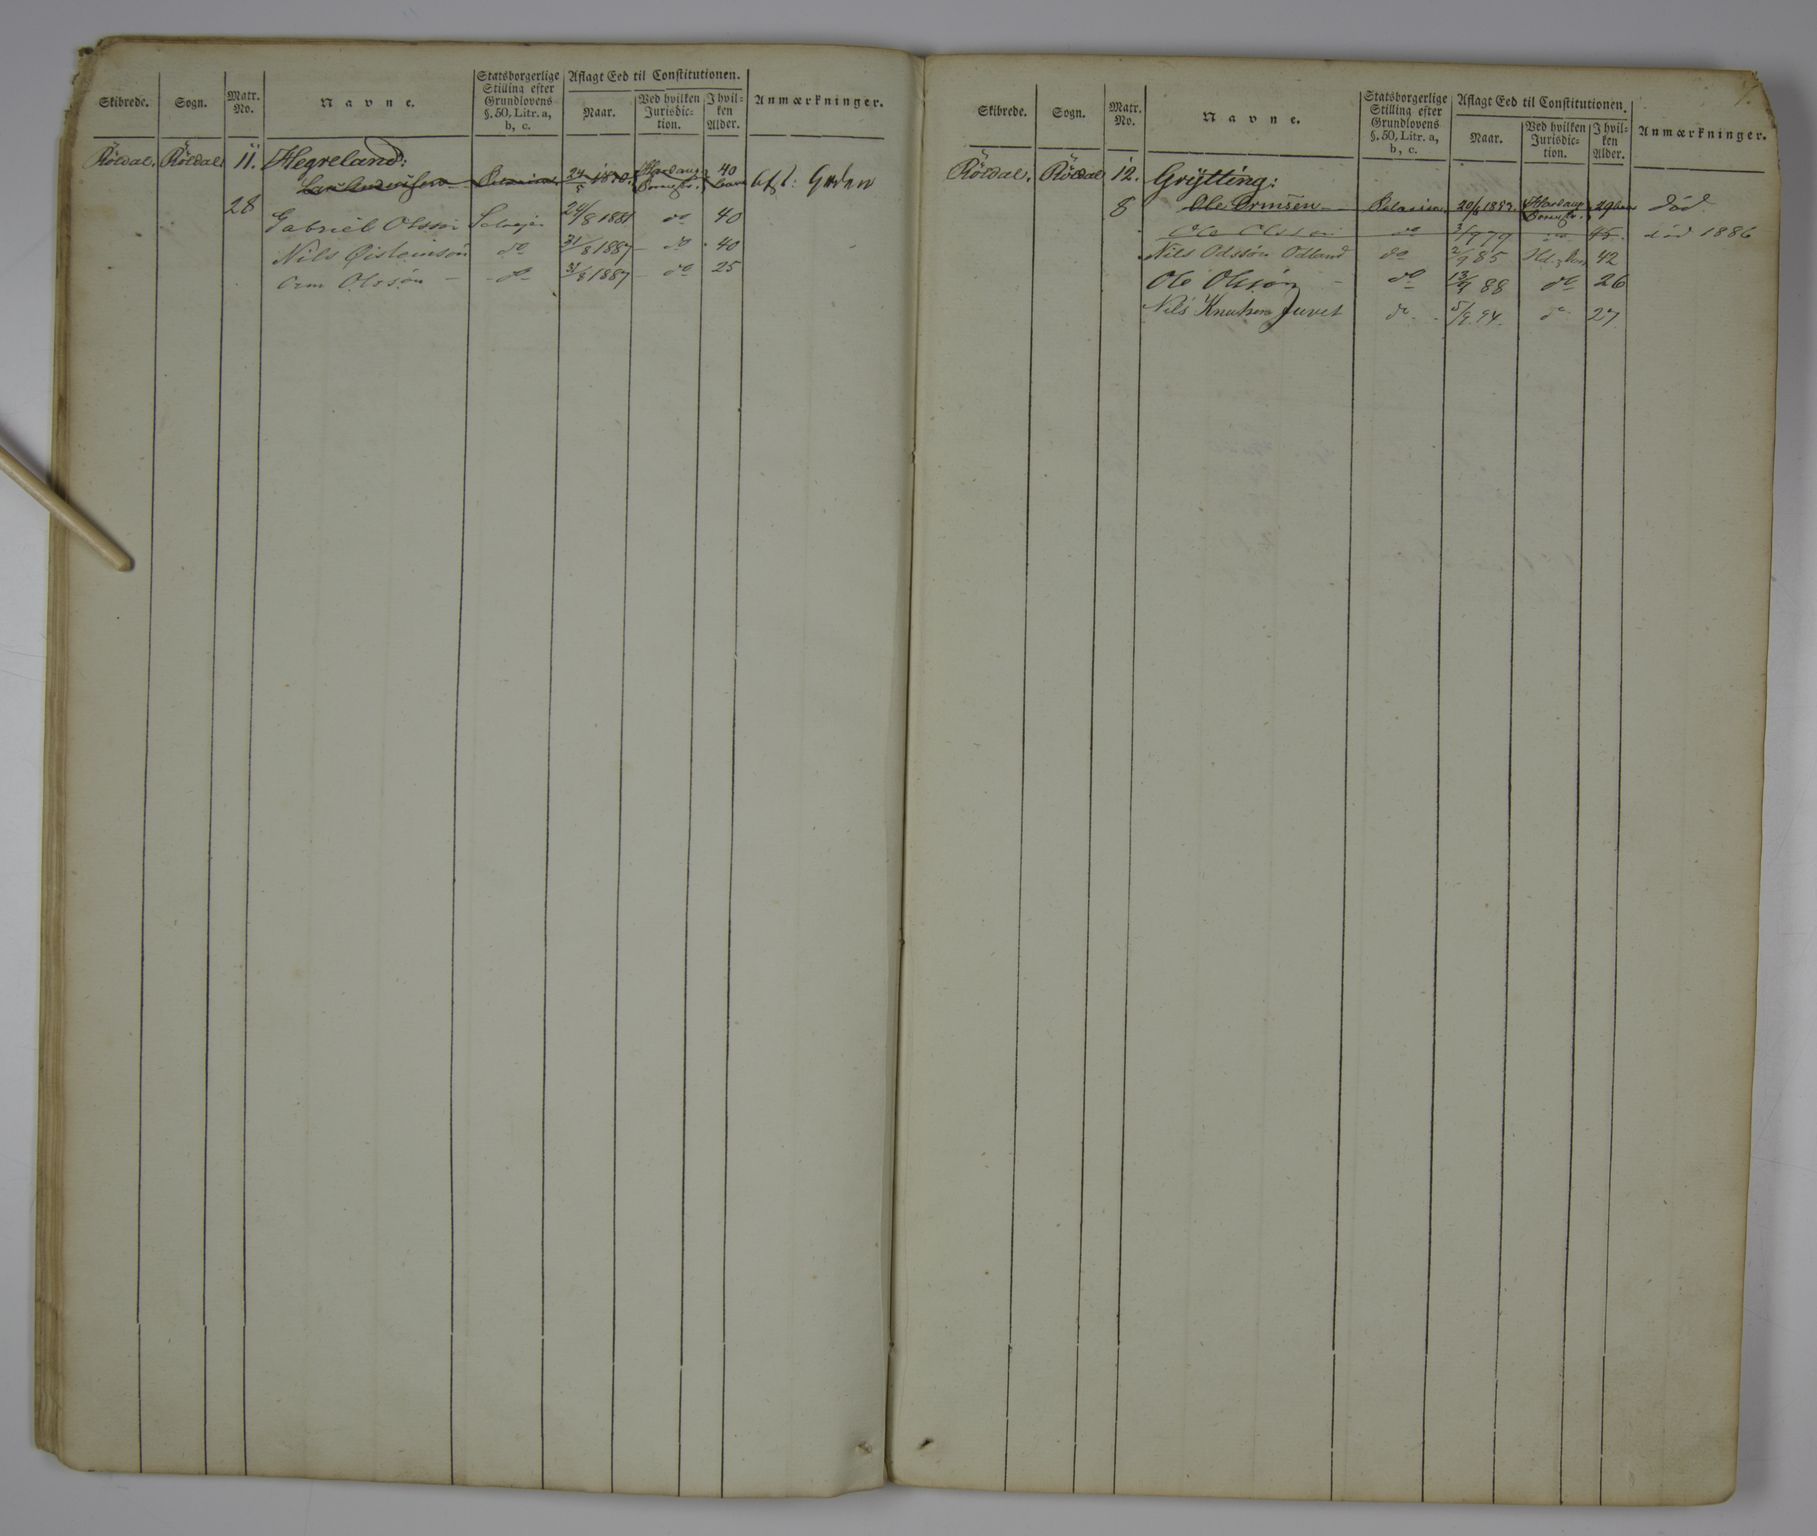 Skibrede. Sogn. Matr. No. Navne. Statsborgerlige Stilling efter Grundlovens §. 50, Litr. a, b, c. Aflagt Eed til Constitutionen. Naar. Ved hvilken Jurisdiction. I hvilken Alder. Anmærkninger.
Röldal. Röldal. 11. Hegreland:
24/5 1870. 40
28 Gabriel Olssøn Selvejer 24/8 1881 do 40
Nils Øisteinsøn do 31/8 1887 – do 40
Orm Olssøn – do 31/8 1887 – do 25
Skibrede. Sogn. Matr. No. Navne. Statsborgerlige Stilling efter Grundlovens §. 50, Litr. a, b, c. Aflagt Eed til Constitutionen. Naar. Ved hvilken Jurisdiction. I hvilken Alder. Anmærkninger.
Röldal. Röldal 12. Grytting:
8 Ole Ormsen død.
Ole Olssøn do do 45. død 1886
Nils Odssøn Odland do 2/9 85 42
Ole Olssøn – do 13/9 88 do 26
Nils Knutsen Juvet do. 5/9. 94. do 27